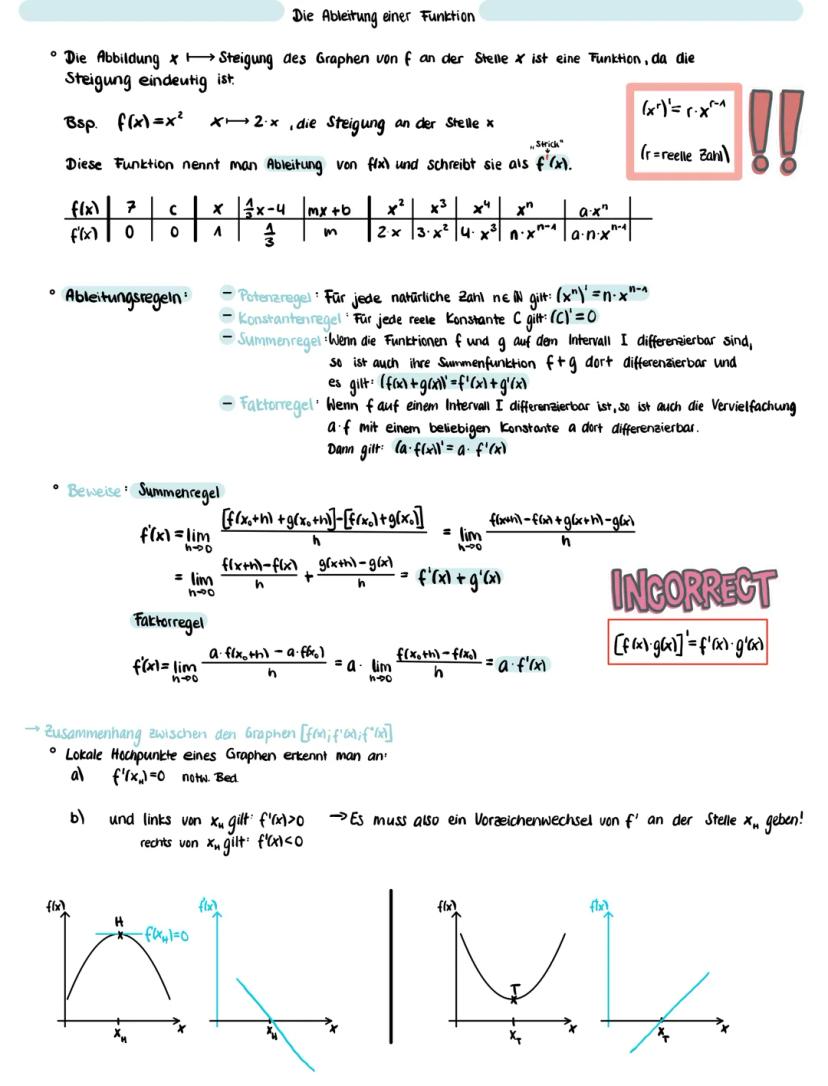 Die Ableitung einer Funktion
° Die Abbildung x ⟼ Steigung des Graphen von f an der Stelle x ist eine Funktion, da die
Steigung eindeutig ist.
Bsp. f(x)=x² x⟼2·x , die Steigung an der Stelle x
(xʳ)'= r·xʳ⁻¹
(r=reelle Zahl)
!!
„Strich"
Diese Funktion nennt man Ableitung von f(x) und schreibt sie als f'(x).
f(x) | 7 | c | x | 1/3x-4 | mx+b | x² | x³ | x⁴ | xⁿ | a·xⁿ
f'(x) | 0 | 0 | 1 | 1/3 | m | 2·x | 3·x² | 4·x³ | n·xⁿ⁻¹ | a·n·xⁿ⁻¹
° Ableitungsregeln: - Potenzregel: Für jede natürliche Zahl n∈ℕ gilt: (xⁿ)'=n·xⁿ⁻¹
- Konstantenregel: Für jede reele Konstante C gilt: (c)'=0
- Summenregel: Wenn die Funktionen f und g auf dem Intervall I differenzierbar sind,
so ist auch ihre Summenfunktion f+g dort differenzierbar und
es gilt: (f(x)+g(x))'=f'(x)+g'(x)
- Faktorregel: Wenn f auf einem Intervall I differenzierbar ist, so ist auch die Vervielfachung
a·f mit einem beliebigen Konstante a dort differenzierbar.
Dann gilt: (a·f(x))'= a· f'(x)
° Beweise: Summenregel
f'(x) = lim h→0 [f(x₀+h)+g(x₀+h)]-[f(x₀)+g(x₀)] / h = lim h→0 f(x+h)-f(x)+g(x+h)-g(x) / h
= lim h→0 f(x+h)-f(x) / h + g(x+h)-g(x) / h = f'(x)+g'(x)
INCORRECT
[f(x)·g(x)]'=f'(x)·g'(x)
Faktorregel
f'(x)= lim h→0 a·f(x₀+h) - a·f(x₀) / h = a· lim h→0 f(x₀+h)-f(x₀) / h = a·f'(x)
→ Zusammenhang zwischen den Graphen [f(x);f'(x);f"(x)]
° Lokale Hochpunkte eines Graphen erkennt man an:
a) f'(x_H)=0 notw. Bed.
b) und links von x_H gilt: f'(x)>0 → Es muss also ein Vorzeichenwechsel von f' an der Stelle x_H geben!
rechts von x_H gilt: f'(x)<0
f(x) H f(x_H)=0 x_H x
f'(x) x_H x
f(x) T x_T x
f'(x) x_T x